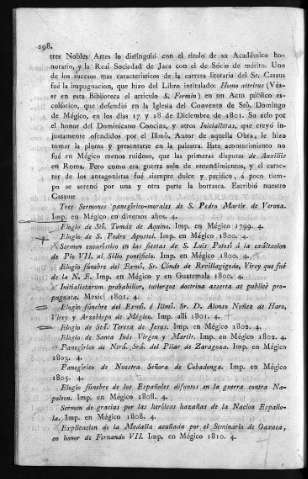 298.
tres Nobles Artes lo distinguió con el título de su Académico honorario, y la Real Sociedad de Jaca con el de Socio de mérito. Uno
de los sucesos mas característicos de la carrera literaria del Sr. Casaus
fué la impugnacion, que hizo del Libro intitulado Homo attritus (Véase en esta Biblioteca el artículo S. Fermin) en un Acto público escolástico, que defendió en la Iglesia del Convento de Sto. Domingo
de Mégico, en los dias 17 y 18 de Diciembre de 1801. Su zelo por
el honor del Dominicano Concina, y otros Jubilatitas, que creyó injustamente ofendidos por el Ilmó. Autor de aquella Obra, le hizo
tomar la pluma y presentarse en la palestra. Este acontecimiento no
fué en Mégico menos ruidoso, que las primeras disputas de Auxiliis
en Roma. Pero como era guerra sola de entendimientos, y el caracter de los antagonistas fué siempre dulce y pacífico, á poco tiempo se serenó por una y otra parte la borrasca. Escribió nuestro
Casaus
Tres Sermones panegírico-morales de S. Pedro Martir de Verona.
Imp. en Mégico en diversos años. 4.
Elogio de Sto. Tomás de Aquino. Imp. en Mégico 1799. 4.
Elogio de S. Pedro Apostol. Imp. en Mégico 1800. 4.
Sermon eucarístico en las fiestas de S. Luis Potosí á la exâltacion
de Pio VII. al Sillo pontificio. Imp. en Mégico 1800. 4.
Elogio fúnebre del Exmó. Sr. Conde de Revillagigedo, Virey que fué
de la N. E. Imp. en Mégico y en Guatemala 1800. 4.
propugnata. Mexici 1801. 4.
Elogio fúnebre del Exmó. é Illmó. Sr. D. Alonso Nuñez de Haro,
Virey y Arzobispo de Mégico. Imp. allí 1801. 4.
Elogio de Sta. Teresa de Jesus. Imp. en Mégico 1802. 4.
Elogio de Santa Inés Virgen y Martir. Imp. en Mégico 1802. 4.
Panegírico de Ntrâ. Srâ. del Pilar de Zaragoza. Imp. en Mégico
1803. 4.
Panegírico de Nuestra Señora de Cobadonga. Imp. en Mégico
1805. 4.
Elogio fúnebre de los Españoles difuntos en la guerra contra Napoleon. Imp. en Mégico 1808. 4.
Sermon de gracias por las heróicas hazañas de la Nacion Española. Imp. en Mégico 1808. 4.
Explicacion de la Medalla acuñada por el Seminario de Oaxaca,
en honor de Fernando VII. Imp. en Mégico 1810. 4.